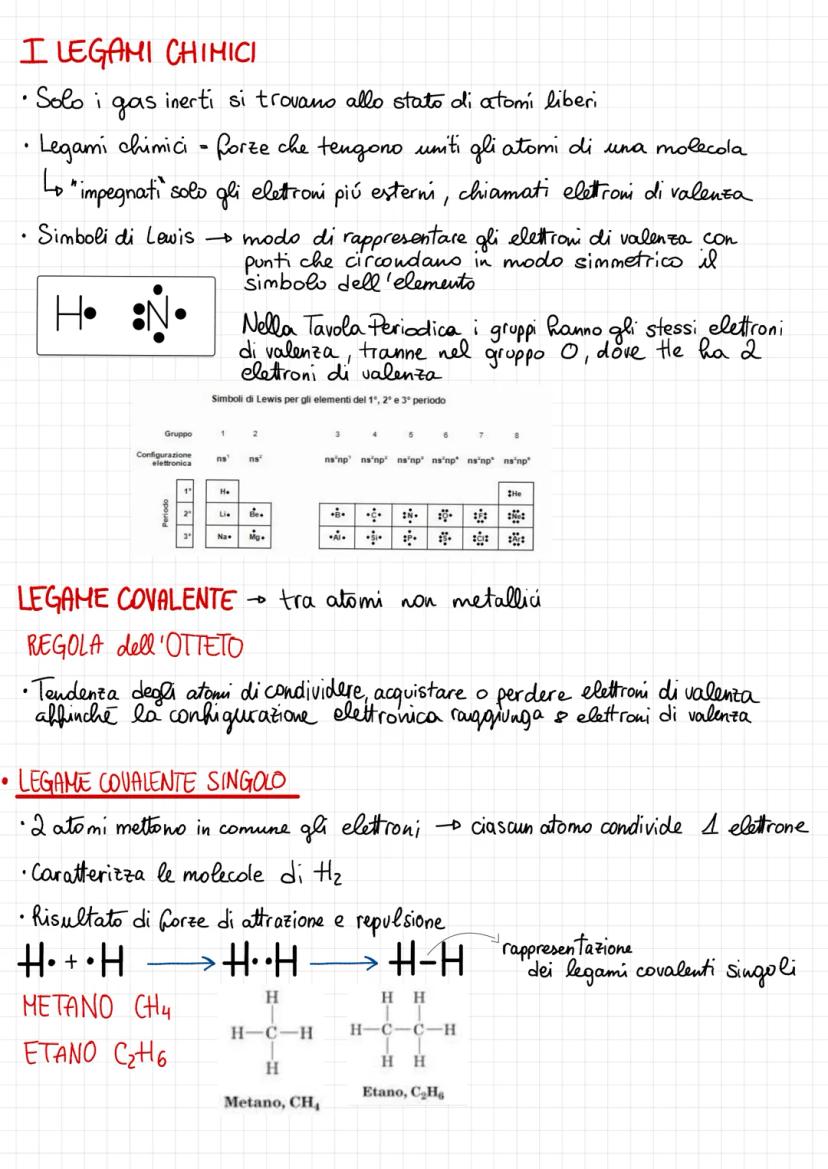 I LEGAMI CHIMICI
• Solo i gas inerti si trovano allo stato di atomi liberi
• Legami chimici = forze che tengono uniti gli atomi di una molecola
↳ "impegnati" solo gli elettroni più esterni, chiamati elettroni di valenza
• Simboli di Lewis → modo di rappresentare gli elettroni di valenza con
punti che circondano in modo simmetrico il
simbolo dell'elemento
H• N
Nella Tavola Periodica i gruppi hanno gli stessi elettroni
di valenza, tranne nel gruppo 0, dove He ha 2
elettroni di valenza
Simboli di Lewis per gli elementi del 1°, 2° e 3° periodo
Gruppo 1 2 3 4 5 6 7 8
Configurazione
elettronica
ns¹ ns² ns²np¹ ns²np² ns²np³ ns²np⁴ ns²np⁵ ns²np⁶
Periodo
1° H He
2° Li Be B C N O F Ne
3° Na Mg Al Si P S Cl Ar
LEGAME COVALENTE → tra atomi non metallici
REGOLA dell'OTTETO
• Tendenza degli atomi di condividere, acquistare o perdere elettroni di valenza
affinchè la configurazione elettronica raggiunga 8 elettroni di valenza
• LEGAME COVALENTE SINGOLO
• 2 atomi mettono in comune gli elettroni → ciascun atomo condivide 1 elettrone
• Caratterizza le molecole di H₂
• Risultato di forze di attrazione e repulsione
H• + •H → H••H → H–H
rappresentazione
dei legami covalenti singoli
METANO CH₄
ETANO C₂H₆
H
H–C–H
H
Metano, CH₄
H H
H–C–C–H
H H
Etano, C₂H₆